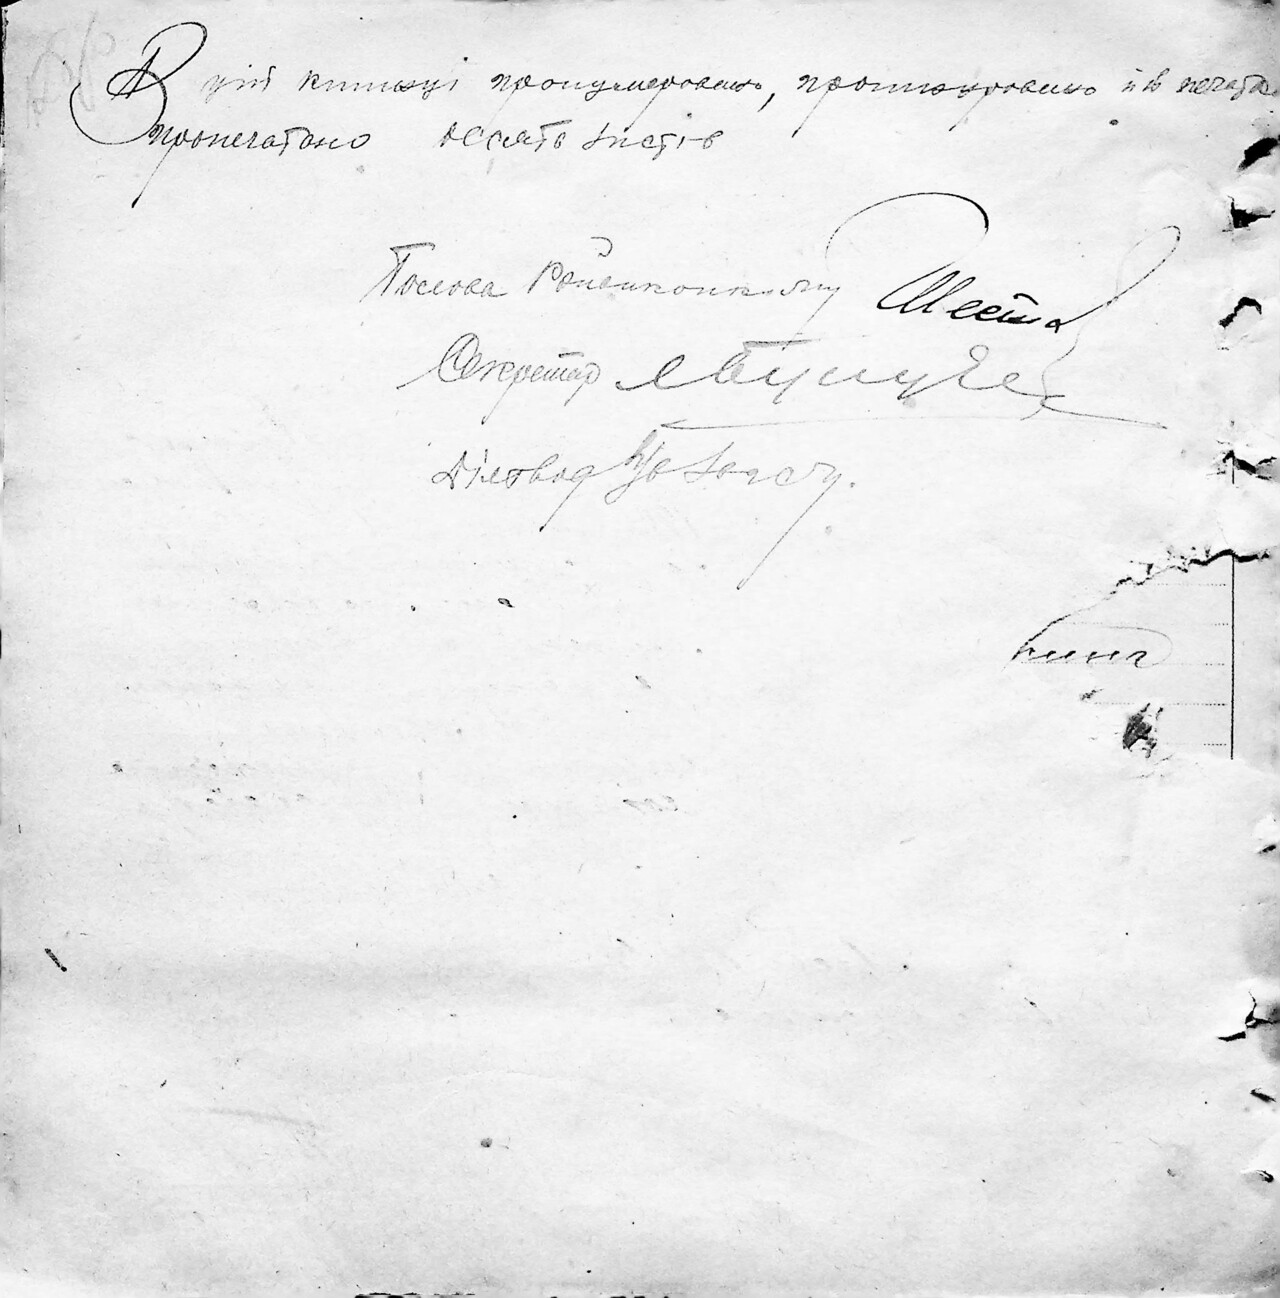 В цій книжці пронумеровано, прошнуровано й в печать
пропечатано десять листів
Голова Райвиконкому
Секретар
Діловод
книг